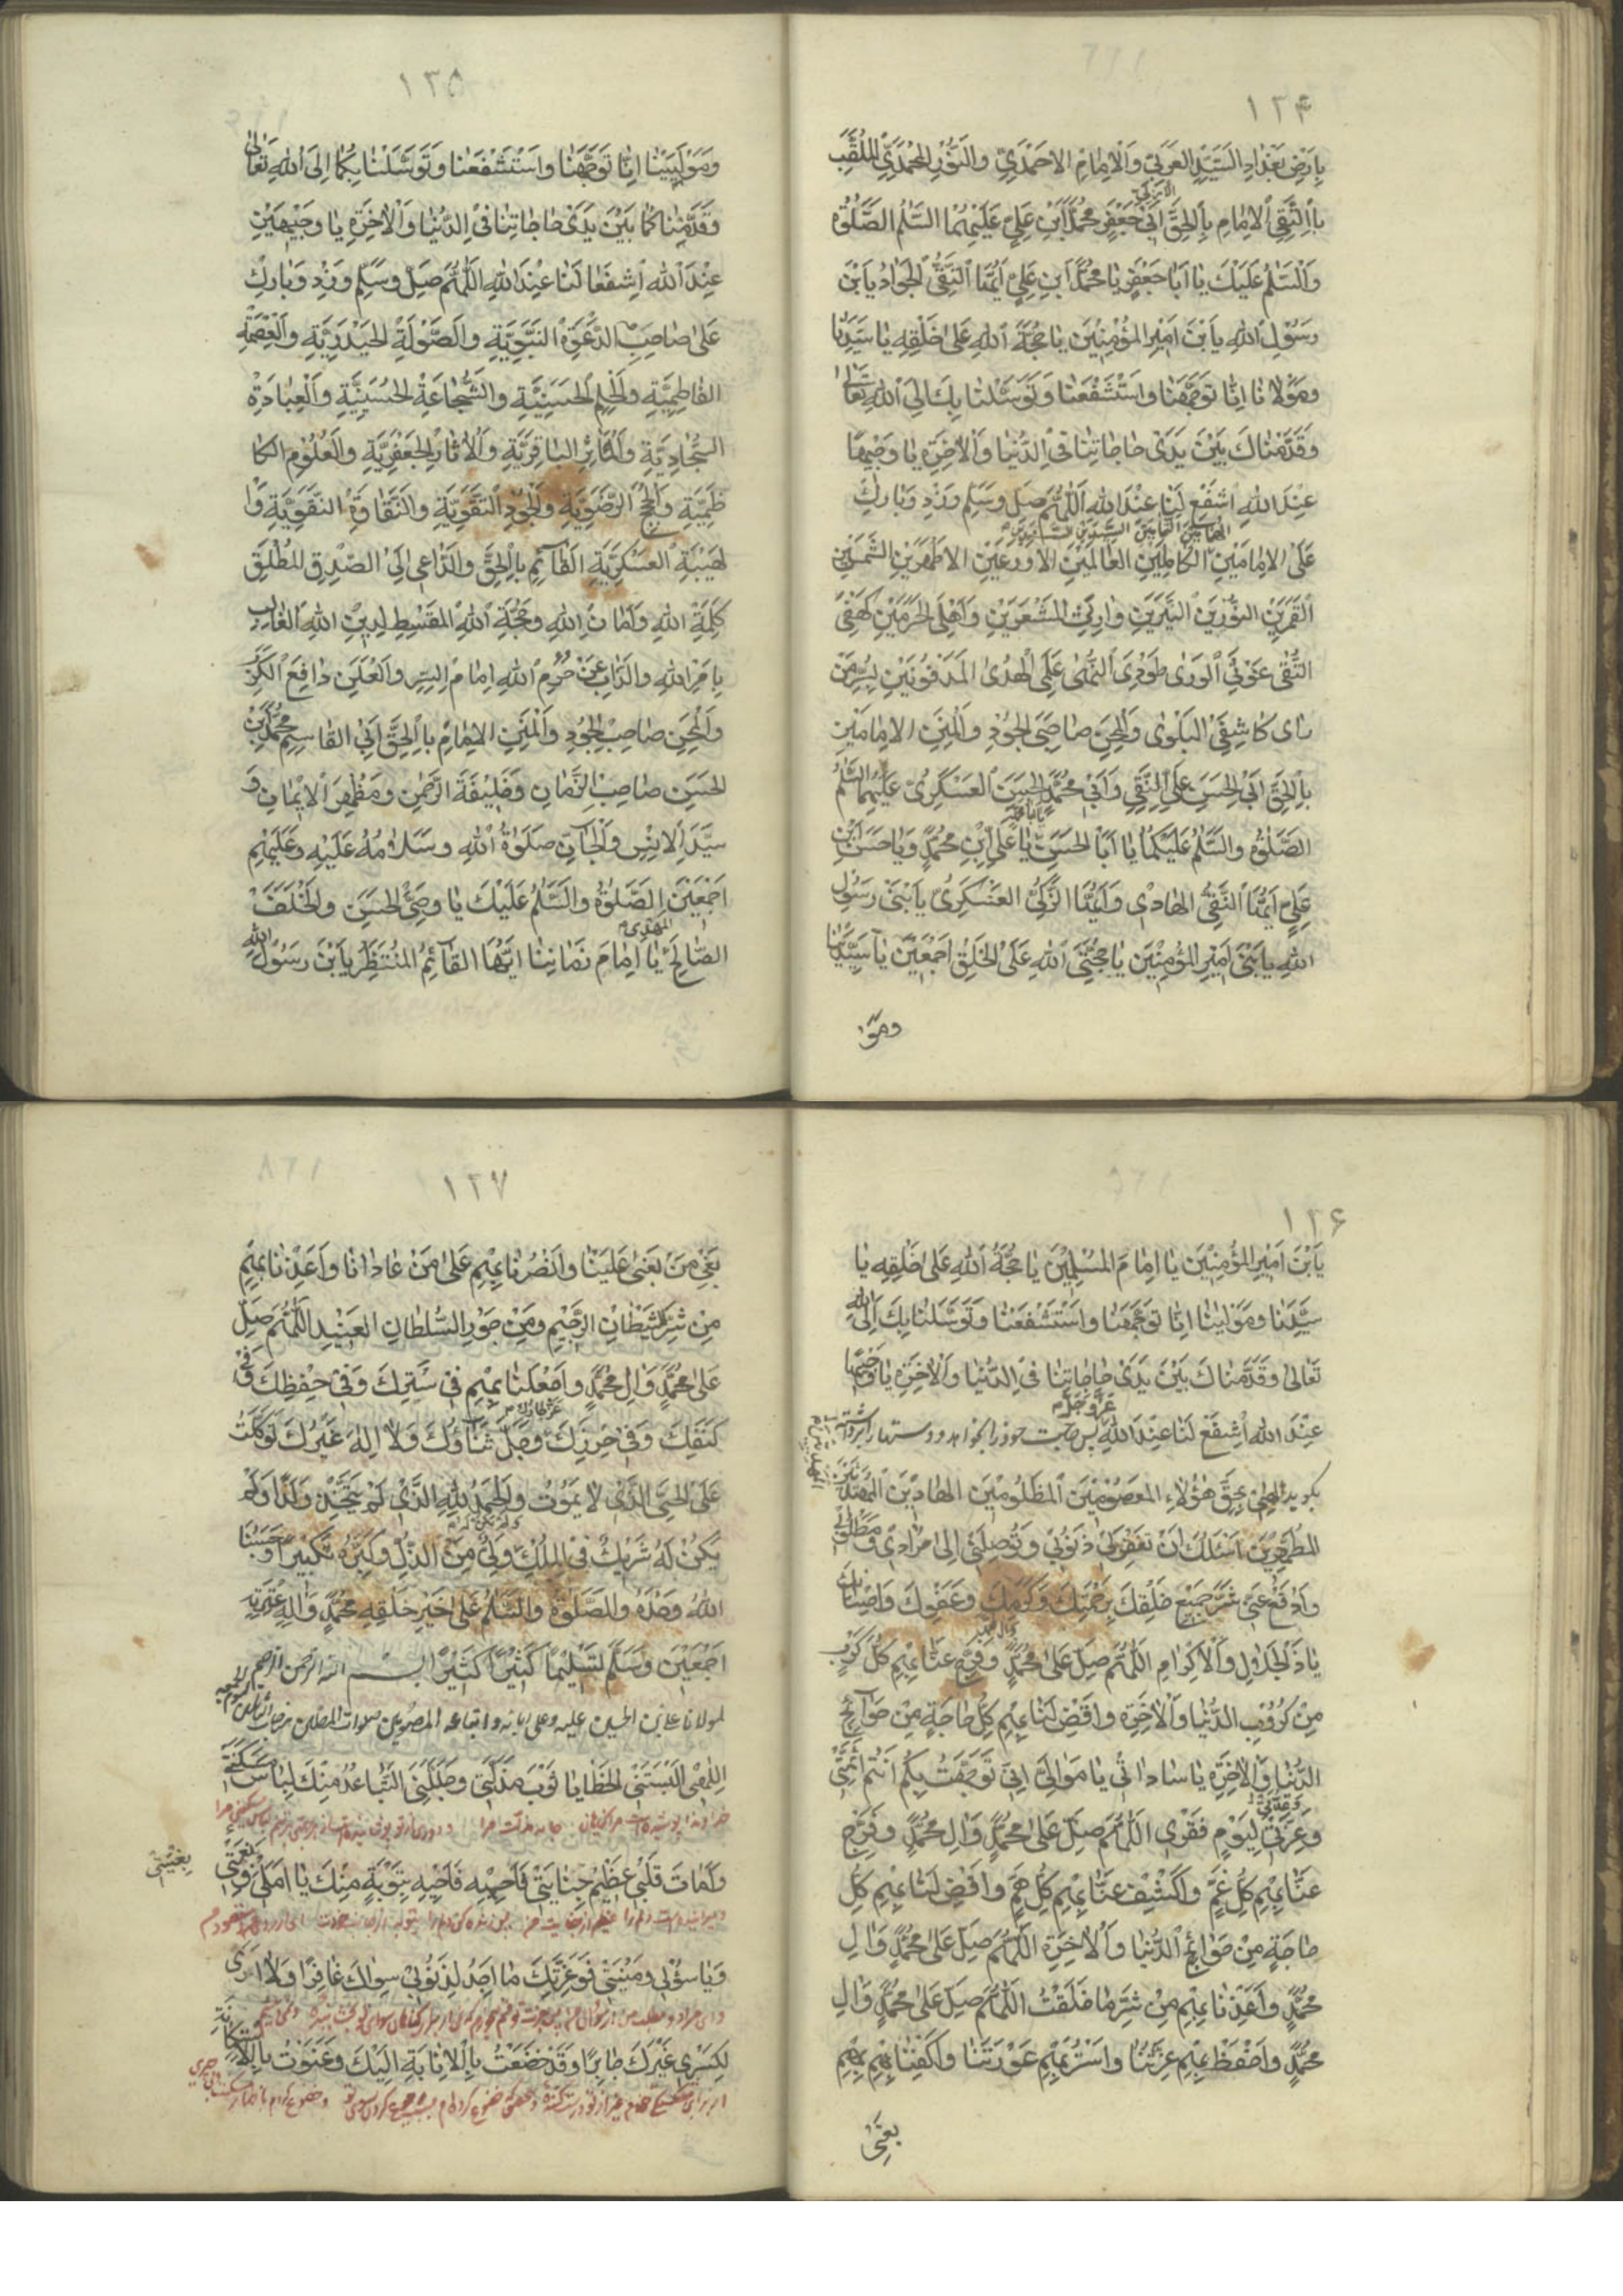 ١٢۴
بِاَرْضِ بَغْدَادِ السَّيِّدِ الْعَرَبِيِّ وَالْاِمَامِ الْاَحْمَدِيِّ وَالنُّورِ الْمُحَمَّدِيِّ الْمُلَقَّبِ
بِالتَّقِيِّ الْاِمَامِ بِالْحَقِّ اَبِي جَعْفَرٍ مُحَمَّدِ ابْنِ عَلِيٍّ عَلَيْهِمَا السَّلٰمُ الصَّلٰوةُ
وَالسَّلٰمُ عَلَيْكَ يَا اَبَا جَعْفَرٍ يَا مُحَمَّدَ ابنِ عَلِيٍّ اَيُّهَا التَّقِيُّ الْجَوَادُ يَابْنَ
رَسُوْلِ اللهِ يَابْنَ اَمِيْرِ الْمُؤْمِنِيْنَ يَا حُجَّةَ اللهِ عَلٰى خَلْقِهِ يَا سَيِّدَنَا
وَمَوْلَانَا اِنَّا تَوَجَّهْنَا وَاسْتَشْفَعْنَا وَتَوَسَّلْنَا بِكَ اِلَى اللهِ تَعَالٰى
وَقَدَّمْنَاكَ بَيْنَ يَدَيْ حَاجَاتِنَا فِي الدُّنْيَا وَالْاٰخِرَةِ يَا وَجِيْهًا
عِنْدَ اللهِ اشْفَعْ لَنَا عِنْدَ اللهِ اَللّٰهُمَّ صَلِّ وَسَلِّمْ وَزِدْ وَبَارِكْ
عَلَى الْاِمَامَيْنِ الْكَامِلَيْنِ الْعَالِمَيْنِ الْاَوْرَعَيْنِ الْاَطْهَرَيْنِ الشَّمْسَيْنِ
الْقَمَرَيْنِ النُّوْرَيْنِ النَّيِّرَيْنِ وَارِثَيِ الْمَشْعَرَيْنِ وَاَهْلَيِ الْحَرَمَيْنِ كَهْفَيِ
التُّقٰى غَوْثَيِ الْوَرٰى طَوْدَيِ النُّهٰى عَلَمَيِ الْهُدٰى الْمَدْفُوْنَيْنِ بِسُرَّ مَنْ
رَاٰى كَاشِفَيِ الْبَلْوٰى وَالْمِحَنِ صَاحِبَيِ الْجُوْدِ وَالْمِنَنِ الْاِمَامَيْنِ
بِالْحَقِّ اَبِي الْحَسَنِ عَلِيٍّ النَّقِيِّ وَاَبِيْ مُحَمَّدٍ الْحَسَنِ الْعَسْكَرِيِّ عَلَيْهِمَا السَّلٰمُ
الصَّلٰوةُ وَالسَّلٰمُ عَلَيْكُمَا يَا اَبَا الْحَسَنِ يَا عَلِيَّ ابْنِ مُحَمَّدٍ وَيَا حَسَنَ ابْنِ
عَلِيٍّ اَيُّهَا النَّقِيُّ الْهَادِيْ وَاَيُّهَا الزَّكِيُّ الْعَسْكَرِيُّ يَابْنَيْ رَسُوْلِ
اللهِ يَابْنَيْ اَمِيْرِ الْمُؤْمِنِيْنَ يَا حُجَّتَيِ اللهِ عَلَى الْخَلْقِ اَجْمَعِيْنَ يَا سَيِّدَيْنَا
ومو
١٢٥
وَمَوْلَيَيْنَا اِنَّا تَوَجَّهْنَا وَاسْتَشْفَعْنَا وَتَوَسَّلْنَا بِكُمَا اِلَى اللهِ تَعَالٰى
وَقَدَّمْنَاكُمَا بَيْنَ يَدَيْ حَاجَاتِنَا فِي الدُّنْيَا وَالْاٰخِرَةِ يَا وَجِيْهَيْنِ
عِنْدَ اللهِ اِشْفَعَا لَنَا عِنْدَ اللهِ اَللّٰهُمَّ صَلِّ وَسَلِّمْ وَزِدْ وَبَارِكْ
عَلٰى صَاحِبِ الدَّعْوَةِ النَّبَوِيَّةِ وَالصَّوْلَةِ الْحَيْدَرِيَّةِ وَالْعِصْمَةِ
الْفَاطِمِيَّةِ وَالْحِلْمِ الْحَسَنِيَّةِ وَالشَّجَاعَةِ الْحُسَيْنِيَّةِ وَالْعِبَادَةِ
السَّجَّادِيَّةِ وَالْمَاٰثِرِ الْبَاقِرِيَّةِ وَالْاٰثَارِ الْجَعْفَرِيَّةِ وَالْعُلُوْمِ الْكَا
ظِمِيَّةِ وَالْحُجَجِ الرَّضَوِيَّةِ وَالْجُوْدِ التَّقَوِيَّةِ وَالنَّقَاوَةِ النَّقَوِيَّةِ وَا
لْهَيْبَةِ الْعَسْكَرِيَّةِ الْقَائِمِ بِالْحَقِّ وَالدَّاعِيْ اِلَى الصِّدْقِ الْمُطْلَقِ
كَلِمَةِ اللهِ وَاَمَانِ اللهِ وَحُجَّةِ اللهِ الْمُقْسِطِ لِدِيْنِ اللهِ الْغَالِبِ
بِاَمْرِ اللهِ وَالذَّابِّ عَنْ حَرَمِ اللهِ اِمَامِ السِّرِّ وَالْعَلَنِ دَافِعِ الْكَرْبِ
وَالْمِحَنِ صَاحِبِ الْجُوْدِ وَالْمِنَنِ الْاِمَامِ بِالْحَقِّ اَبِي الْقَاسِمِ مُحَمَّدِ ابْنِ
الْحَسَنِ صَاحِبِ الزَّمَانِ وَخَلِيْفَةِ الرَّحْمٰنِ وَمُظْهِرِ الْاِيْمَانِ وَ
سَيِّدِ الْاِنْسِ وَالْجَانِّ صَلَوٰةُ اللهِ وَسَلَامُهُ عَلَيْهِ وَعَلَيْهِمْ
اَجْمَعِيْنَ الصَّلٰوةُ وَالسَّلٰمُ عَلَيْكَ يَا وَصِيَّ الْحَسَنِ وَالْخَلَفَ
الصَّالِحَ يَا اِمَامَ زَمَانِنَا اَيُّهَا الْقَآئِمُ الْمُنْتَظَرُ الْمَهْدِيُّ يَابْنَ رَسُوْلِ اللهِ
١٢۶
يَابْنَ اَمِيْرِ الْمُؤْمِنِيْنَ يَا اِمَامَ الْمُسْلِمِيْنَ يَا حُجَّةَ اللهِ عَلٰى خَلْقِهِ يَا
سَيِّدَنَا وَمَوْلَيْنَا اِنَّا تَوَجَّهْنَا وَاسْتَشْفَعْنَا وَتَوَسَّلْنَا بِكَ اِلَى اللهِ
تَعَالٰى وَقَدَّمْنَاكَ بَيْنَ يَدَيْ حَاجَاتِنَا فِي الدُّنْيَا وَالْاٰخِرَةِ يَا وَجِيْهًا
عِنْدَ اللهِ اِشْفَعْ لَنَا عِنْدَ اللهِ عَزَّ وَجَلَّ پس حاجت خود را بخواهد و دستها را برداشته
بگويد اِلٰهِيْ بِحَقِّ هٰؤُلَاءِ الْمَعْصُوْمِيْنَ الْمَظْلُوْمِيْنَ الْهَادِيْنَ الْمَهْدِيِّيْنَ
الْمُطَهَّرِيْنَ اَسْئَلُكَ اَنْ تَغْفِرَ لِيْ ذُنُوْبِيْ وَتُوْصِلَنِيْ اِلٰى مُرَادِيْ وَمَطْلَبِيْ
وَادْفَعْ عَنِّيْ شَرَّ جَمِيْعِ خَلْقِكَ بِرَحْمَتِكَ وَكَرَمِكَ وَعَفْوِكَ وَاِحْسَانِكَ
يَا ذَا الْجَلَالِ وَالْاِكْرَامِ اَللّٰهُمَّ صَلِّ عَلٰى مُحَمَّدٍ وَفَرِّجْ عَنَّا بِهِمْ كُلَّ كَرْبٍ
مِنْ كُرُوْبِ الدُّنْيَا وَالْاٰخِرَةِ وَاقْضِ لَنَا بِهِمْ كُلَّ حَاجَةٍ مِنْ حَوَآئِجِ
الدُّنْيَا وَالْاٰخِرَةِ يَا سَادَاتِيْ يَا مَوَالِيَّ اِنِّيْ تَوَجَّهْتُ بِكُمْ اَنْتُمْ اَئِمَّتِيْ
وَعُدَّتِيْ لِيَوْمِ فَقْرِيْ اَللّٰهُمَّ صَلِّ عَلٰى مُحَمَّدٍ وَاٰلِ مُحَمَّدٍ وَفَرِّجْ
عَنَّا بِهِمْ كُلَّ غَمٍّ وَاكْشِفْ عَنَّا بِهِمْ كُلَّ هَمٍّ وَاقْضِ لَنَا بِهِمْ كُلَّ
حَاجَةٍ مِنْ حَوَائِجِ الدُّنْيَا وَالْاٰخِرَةِ اَللّٰهُمَّ صَلِّ عَلٰى مُحَمَّدٍ وَاٰلِ
مُحَمَّدٍ وَاَعِذْنَا بِهِمْ مِنْ شَرِّ مَا خَلَقْتَ اَللّٰهُمَّ صَلِّ عَلٰى مُحَمَّدٍ وَاٰلِ
مُحَمَّدٍ وَاحْفَظْ بِهِمْ عِزَّتَنَا وَاسْتُرْ بِهِمْ عَوْرَتَنَا وَاكْفِنَا بِهِمْ
بغي
١٢٧
بَغْيَ مَنْ بَغٰى عَلَيْنَا وَانْصُرْنَا بِهِمْ عَلٰى مَنْ عَادَانَا وَاَعِذْنَا بِهِمْ
مِنْ شَرِّ الشَّيْطَانِ الرَّجِيْمِ وَمِنْ جَوْرِ السُّلْطَانِ الْعَنِيْدِ اَللّٰهُمَّ صَلِّ
عَلٰى مُحَمَّدٍ وَاٰلِ مُحَمَّدٍ وَاجْعَلْنَا بِهِمْ فِيْ سَتْرِكَ وَفِيْ حِفْظِكَ وَفِيْ
كَنَفِكَ وَفِيْ حِرْزِكَ عَزَّ جَارُكَ وَجَلَّ ثَنَاؤُكَ وَلَا اِلٰهَ غَيْرُكَ تَوَكَّلْتُ
عَلَى الْحَيِّ الَّذِيْ لَا يَمُوْتُ وَالْحَمْدُ لِلّٰهِ الَّذِيْ لَمْ يَتَّخِذْ وَلَدًا وَلَمْ
يَكُنْ لَهُ شَرِيْكٌ فِي الْمُلْكِ وَلِيٌّ مِنَ الذُّلِّ وَكَبِّرْهُ تَكْبِيْرًا وَحَسْبُنَا
اللهُ وَحْدَهُ وَالصَّلٰوةُ وَالسَّلٰمُ عَلٰى خَيْرِ خَلْقِهِ مُحَمَّدٍ وَاٰلِهِ وَعِتْرَتِهِ
اَجْمَعِيْنَ وَسَلَّمَ تَسْلِيْمًا كَثِيْرًا كَثِيْرًا بسم الله الرحمن الرحيم
لمولانا علي بن الحسين عليه وعلى ابائه و ابنائه المعصومين صلوات المصلين
اِلٰهِيْ اَلْبَسَتْنِيْ الْخَطَايَا ثَوْبَ مَذَلَّتِيْ وَجَلَّلَنِيْ التَّبَاعُدُ مِنْكَ لِبَاسَ مَسْكَنَتِيْ
وَاَمَاتَ قَلْبِيْ عَظِيْمُ جِنَايَتِيْ فَاَحْيِهِ بِتَوْبَةٍ مِنْكَ يَا اَمَلِيْ وَبُغْيَتِيْ
وَيَا سُؤْلِيْ وَمُنْيَتِيْ فَوَعِزَّتِكَ مَا اَجِدُ لِذُنُوْبِيْ سِوَاكَ غَافِرًا وَلَا اَرٰى
لِكَسْرِيْ غَيْرَكَ جَابِرًا وَقَدْ خَضَعْتُ بِالْاِنَابَةِ اِلَيْكَ وَعَنَوْتُ بِالْاِسْتِكَانَةِ